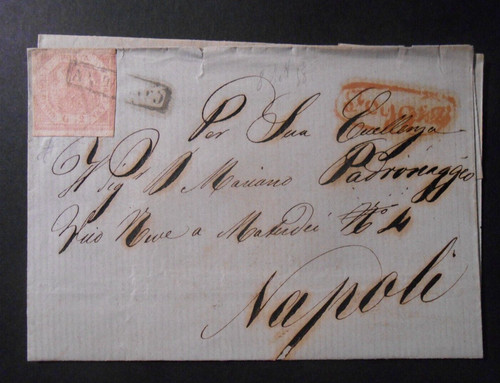 Per Sua Eccellenza
Sig. D. Mariano Padronaggio
Vico Neve a Materdei No 4
Napoli